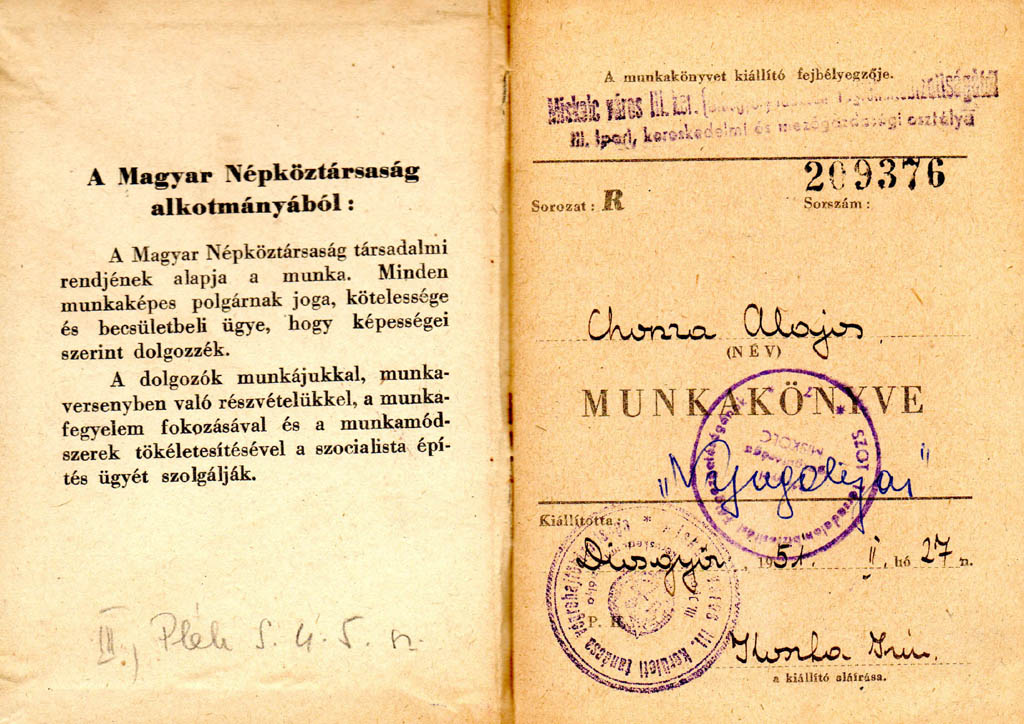 A Magyar Népköztársaság
alkotmányából:
A Magyar Népköztársaság társadalmi
rendjének alapja a munka. Minden
munkaképes polgárnak joga, kötelessége
és becsületbeli ügye, hogy képességei
szerint dolgozzék.
A dolgozók munkájukkal, munka-
versenyben való részvételükkel, a munka-
fegyelem fokozásával és a munkamód-
szerek tökéletesítésével a szocialista épí-
tés ügyét szolgálják.
III.,
A munkakönyvet kiállító fejbélyegzője.
Miskolc város III. ker.
III. Ipari, kereskedelmi és mezőgazdasági osztálya
209376
Sorozat: R Sorszám:
Chosza Alajos
(NÉV)
MUNKAKÖNYVE
SZOT
MISKOLC
"Nyugdíjas"
Kiállította:
Diósgyőr, 1951. II. hó 27 n.
P. H.
III. kerületi tanácsa
Koszka Irén
a kiállító aláírása.